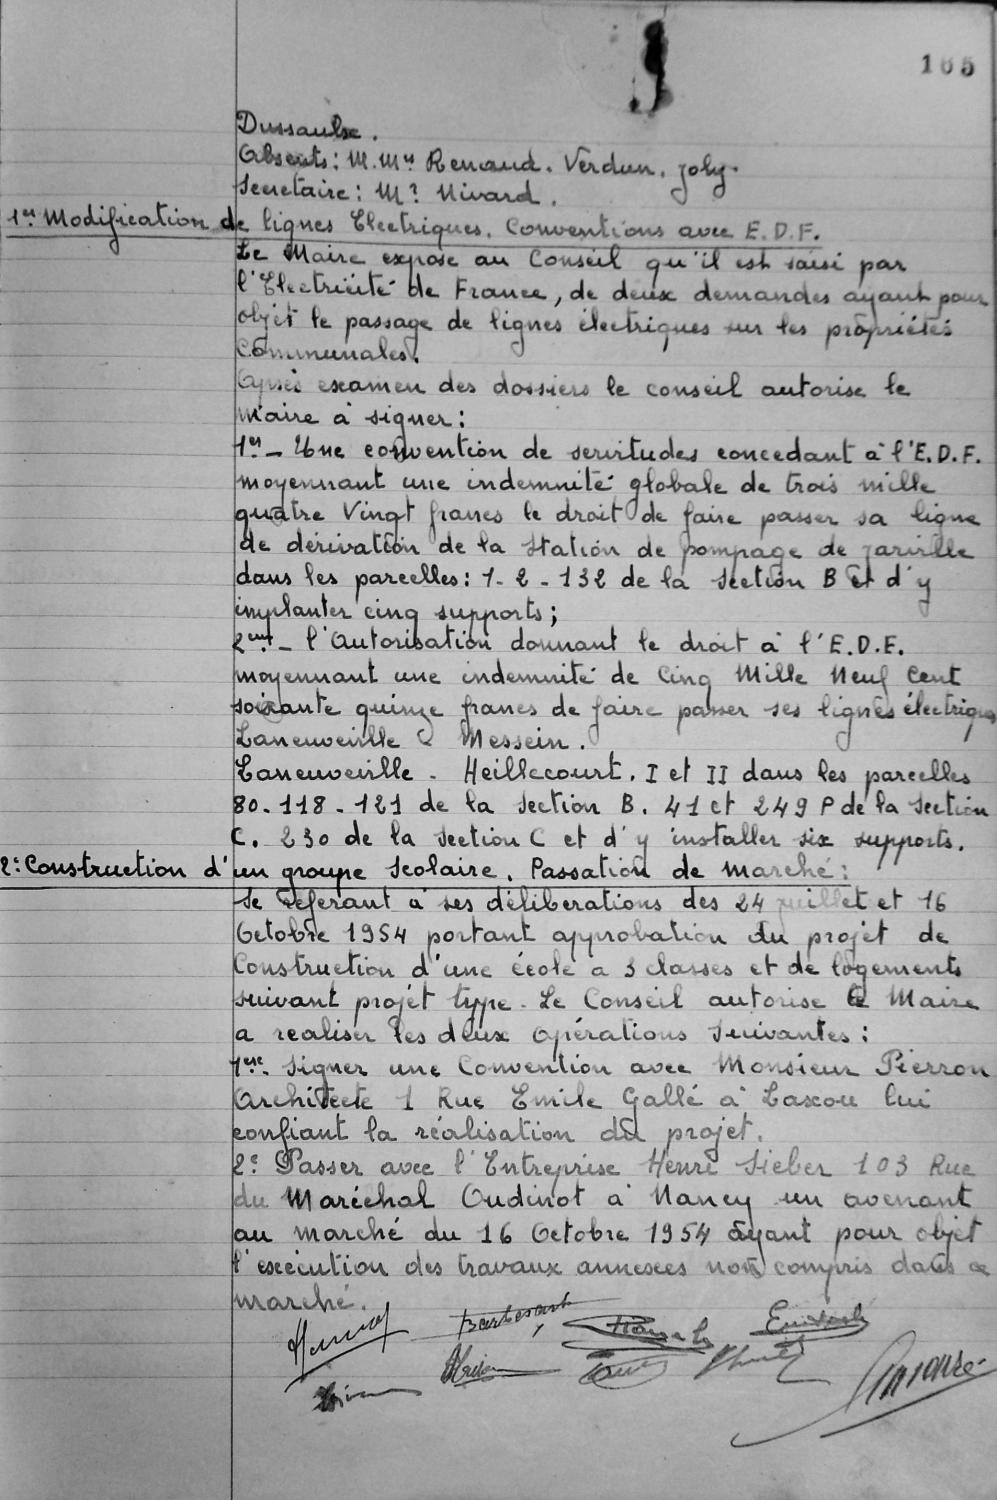 165
Dussaulx.
Absents: M.Mrs Renaud. Verdun. Joly.
Secretaire: Mr Nivard.
1er Modification de lignes Electriques. Conventions avec E.D.F.
Le Maire expose au Conseil qu'il est saisi par
l'Electricité de France, de deux demandes ayant pour
objet le passage de lignes électriques sur les propriétés
Communales.
Après examen des dossiers le conseil autorise le
maire à signer:
1er - Une convention de servitudes concedant à l'E.D.F.
moyennant une indemnité globale de trois mille
quatre Vingt francs le droit de faire passer sa ligne
de dérivation de la Station de pompage de Jarville
dans les parcelles: 1-2-132 de la Section B et d'y
implanter cinq supports;
2eme - l'Autorisation donnant le droit à l'E.D.F.
moyennant une indemnité de Cinq Mille Neuf Cent
soixante quinze francs de faire passer ses lignes électriques
Laneuveville Messein.
Laneuveville - Heillecourt. I et II dans les parcelles
80-118-121 de la Section B. 41 et 249 P de la Section
C. 230 de la Section C et d'y installer six supports.
2: Construction d'un groupe Scolaire. Passation de Marché:
Se réferant à ses délibérations des 24 juillet et 16
Octobre 1954 portant approbation du projet de
Construction d'une école a 3 classes et de logements
suivant projet type. Le Conseil autorise le Maire
a realiser les deux opérations Suivantes:
1ere. Signer une Convention avec Monsieur Pierron
Architecte 1 Rue Emile Gallé à Laxou lui
confiant la réalisation du projet.
2e Passer avec l'Entreprise Henri Sieber 103 Rue
du Maréchal Oudinot à Nancy un avenant
au marché du 16 Octobre 1954 ayant pour objet
l'exécution des travaux annexes non compris dans ce
marché.